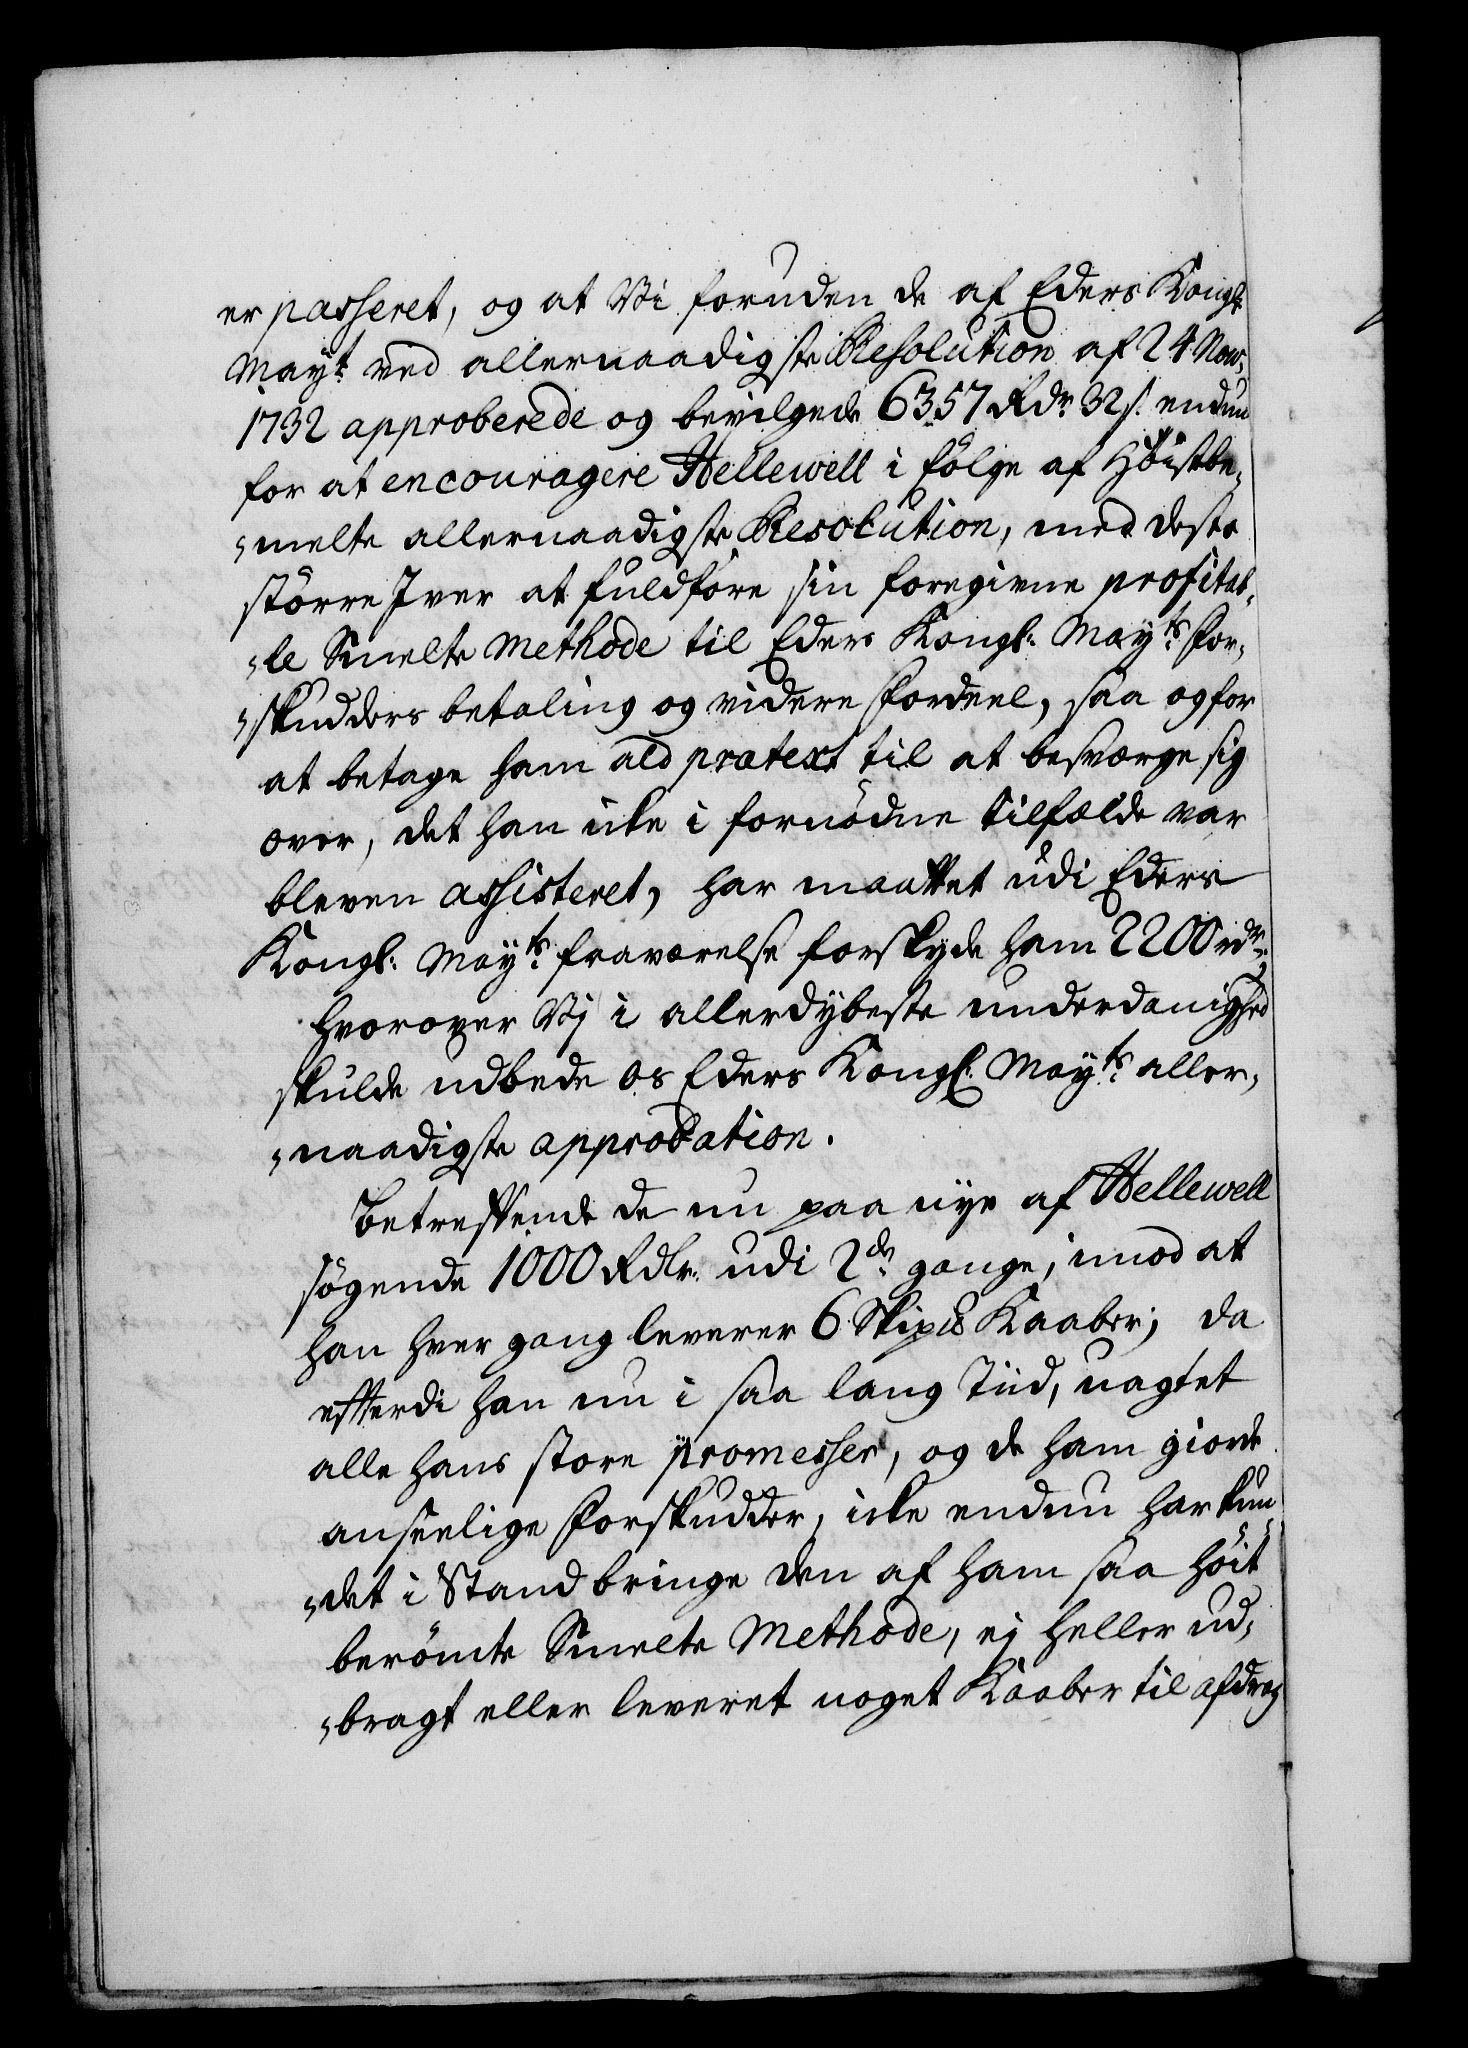 er passeret, og at Vi foruden de af Eders Kongl:
Mayt: ved allernaadigste Resolution af 24 Nov:
1732 approberede og bevilgede 6357 Rdr 32 s. endnu
for at encouragere Hellewell i følge af Høistbe„
„melte allernaadigste Resolution, med desto
större Iver at fuldföre sin foregivne profitab„
„le Smelte Methode til Eders Kongl: Mayts: For„
„skudders betaling og videre Fordeel, saa og for
at betage ham ald prætext til at besværge sig
over, det han icke i fornødne tilfælde var
bleven assisteret, har maattet udi Eders
Kongl: Mayts: fraværelse forskyde ham 2200 rdr:,
hvorover Vj i allerdybeste underdanighed
skulde udbede os Eders Kongl: Mayts: aller„
„naadigste approbation.
Betreffende de nu paa nye af Hellewell
søgende 1000 Rdlr. udi 2de gange, imod at
han hver gang leverer 6 Skip℔ Kaaber; da
efterdi han nu i saa lang Tiid, uagtet
alle hans store promesser, og de ham giorde
anseelige Forskudder, icke endnu har kun„
„det i Stand bringe den af ham saa höit
berömte Smelte Methode, ej heller ud„
„bragt eller leveret noget Kaaber til afdrag